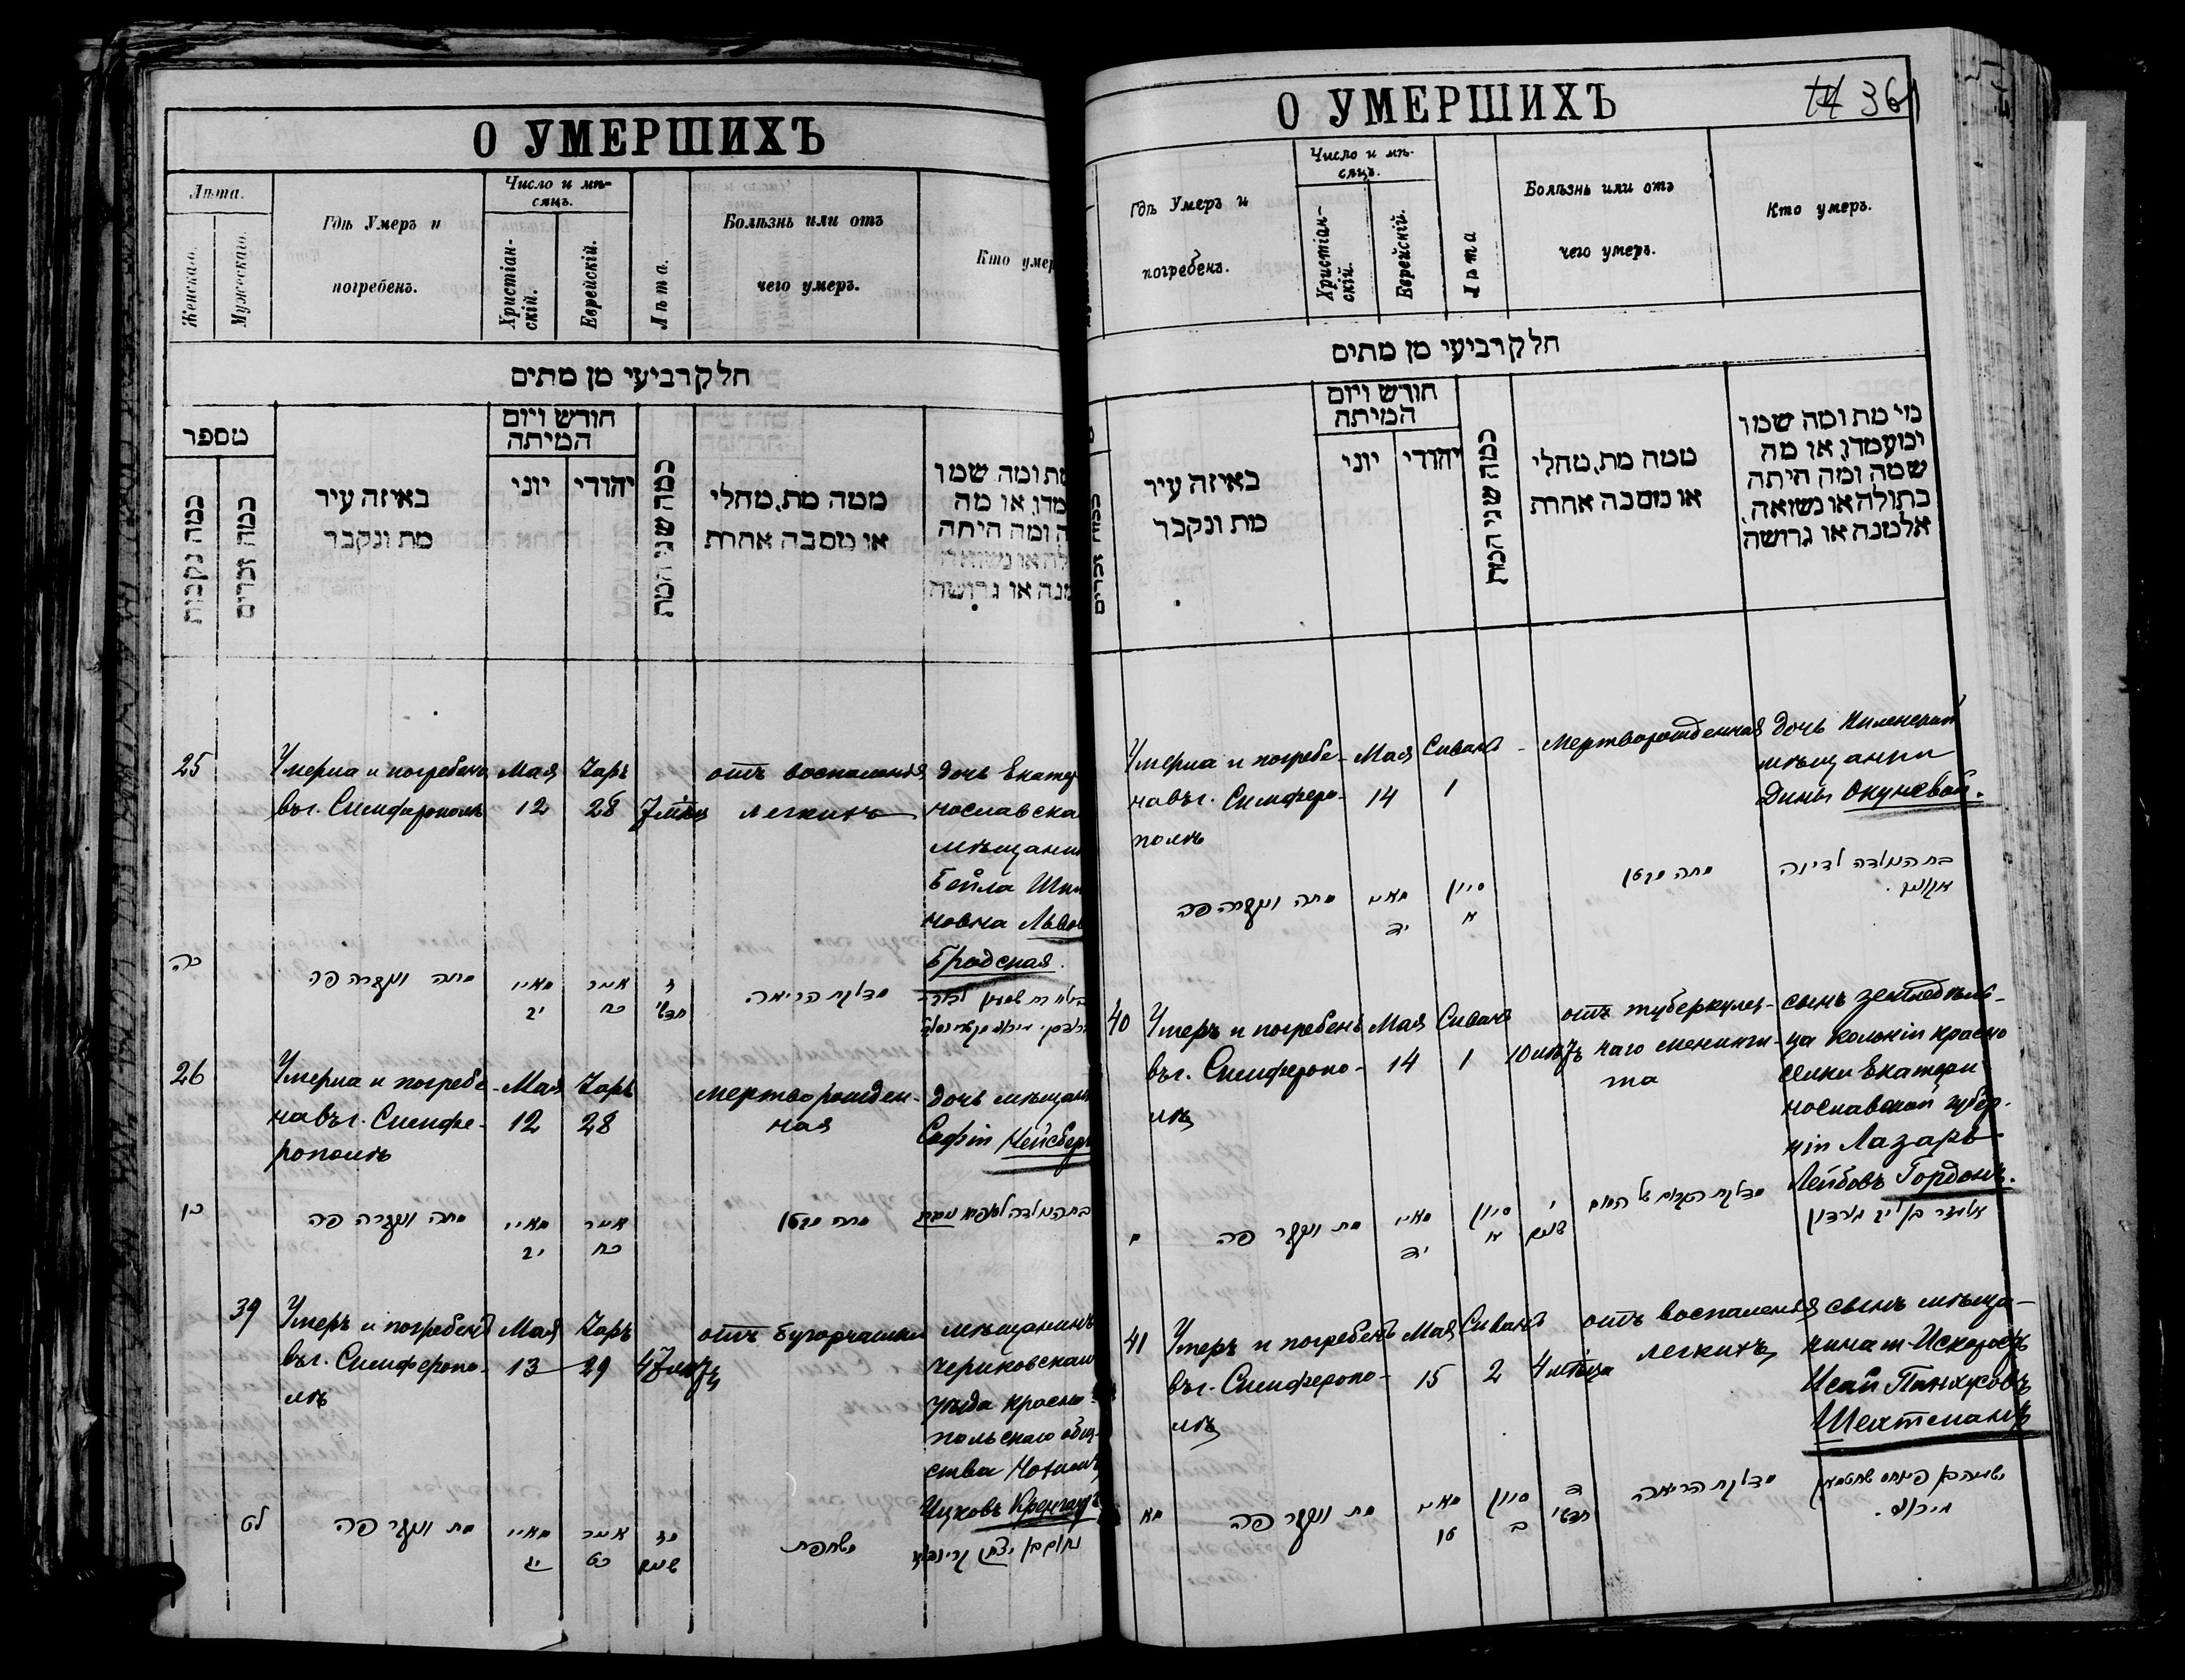 О УМЕРШИХЪ
Лѣта.
Женскаго.
Мужескаго.
Гдѣ Умеръ и
погребенъ.
Число и мѣ-
сяцъ.
Христіан-
скій.
Еврейскій.
Лѣта.
Болѣзнь или отъ
чего умеръ.
Кто умер
חלק רביעי מן מתים
מספר
כמה נקבות
כמה זכרים
באיזה עיר
מת ונקבר
חודש ויום
המיתה
יוני
יהודי
כמה שני המת
ממה מת, מחלי
או מסבה אחרת
מת ומה שמו
מדו, או מה
ה ומה היתה
לה או נשואה
מנה או גרושה
25
Умерла и погребена
въ г. Симферополѣ
Мая
12
Іаръ
28
отъ воспаленія
легкихъ
дочь Екатер
нославска
мѣщанин
Бейла
новна Львов
Бродская.
כה
מתה ונקברה פה
מאיי
יב
אייר
כח
חדשי
מדלקת הריאה
26
Умерла и погребе-
на въ г. Симфе-
рополѣ
Мая
12
Іаръ
28
мертворожден-
ная
дочь мѣщан
Софіи Нейсбер
כו
מתה ונקברה פה
מאיי
יב
אייר
כח
39
Умеръ и погребенъ
въ г. Симферопо-
лѣ
Мая
13
Іаръ
29
отъ бугорчатки
мѣщанинъ
Чериковскаго
уѣзда Красно
польскаго общ-
ства
Ицковъ
לט
מת ונקבר פה
מאיי
יג
אייר
כט
שנים
משחפת
О УМЕРШИХЪ
36
Гдѣ Умеръ и
погребенъ.
Число и мѣ-
сяцъ.
Христіан-
скій.
Еврейскій.
Лѣта
Болѣзнь или отъ
чего умеръ.
Кто умеръ.
חלק רביעי מן מתים
כמה זכרים
באיזה עיר
מת ונקבר
חודש ויום
המיתה
יוני
יהודי
כמה שני המת
ממה מת, מחלי
או מסבה אחרת
מי מת ומה שמו
ומעמדו, או מה
שמה ומה היתה
בתולה או נשואה,
אלמנה או גרושה
Умерла и погребе-
на въ г. Симферо-
полѣ
Мая
14
Сиванъ
1
Мертворожденная
дочь
мѣщанки
Дины Окуневой.
מתה ונקברה פה
מאיי
יד
סיון
א
בת הנולדה לדינה
40
Умеръ и погребенъ
въ г. Симферопо-
лѣ
Мая
14
Сиванъ
1
10 лѣтъ
отъ туберкулез-
наго менинги-
та
сынъ земледѣль-
ца колоніи Красно
селки Екатери
нославской губер-
ніи Лазарь
Лейбовъ Гордонъ.
מ
מת ונקבר פה
מאיי
יד
סיון
א
י
שנים
אליעזר בן לייב גורדון
41
Умеръ и погребенъ
въ г. Симферопо-
лѣ
Мая
15
Сиванъ
2
4 мѣсяца
отъ воспаленія
легкихъ
сынъ мѣща-
нина м. Искорость
Исай Пинхусовъ
Шехтманъ
מא
מת ונקבר פה
מאיי
טו
סיון
ב
ד
חדשי
מדלקת הריאה
ישעיה בן פינחס שחטמאן